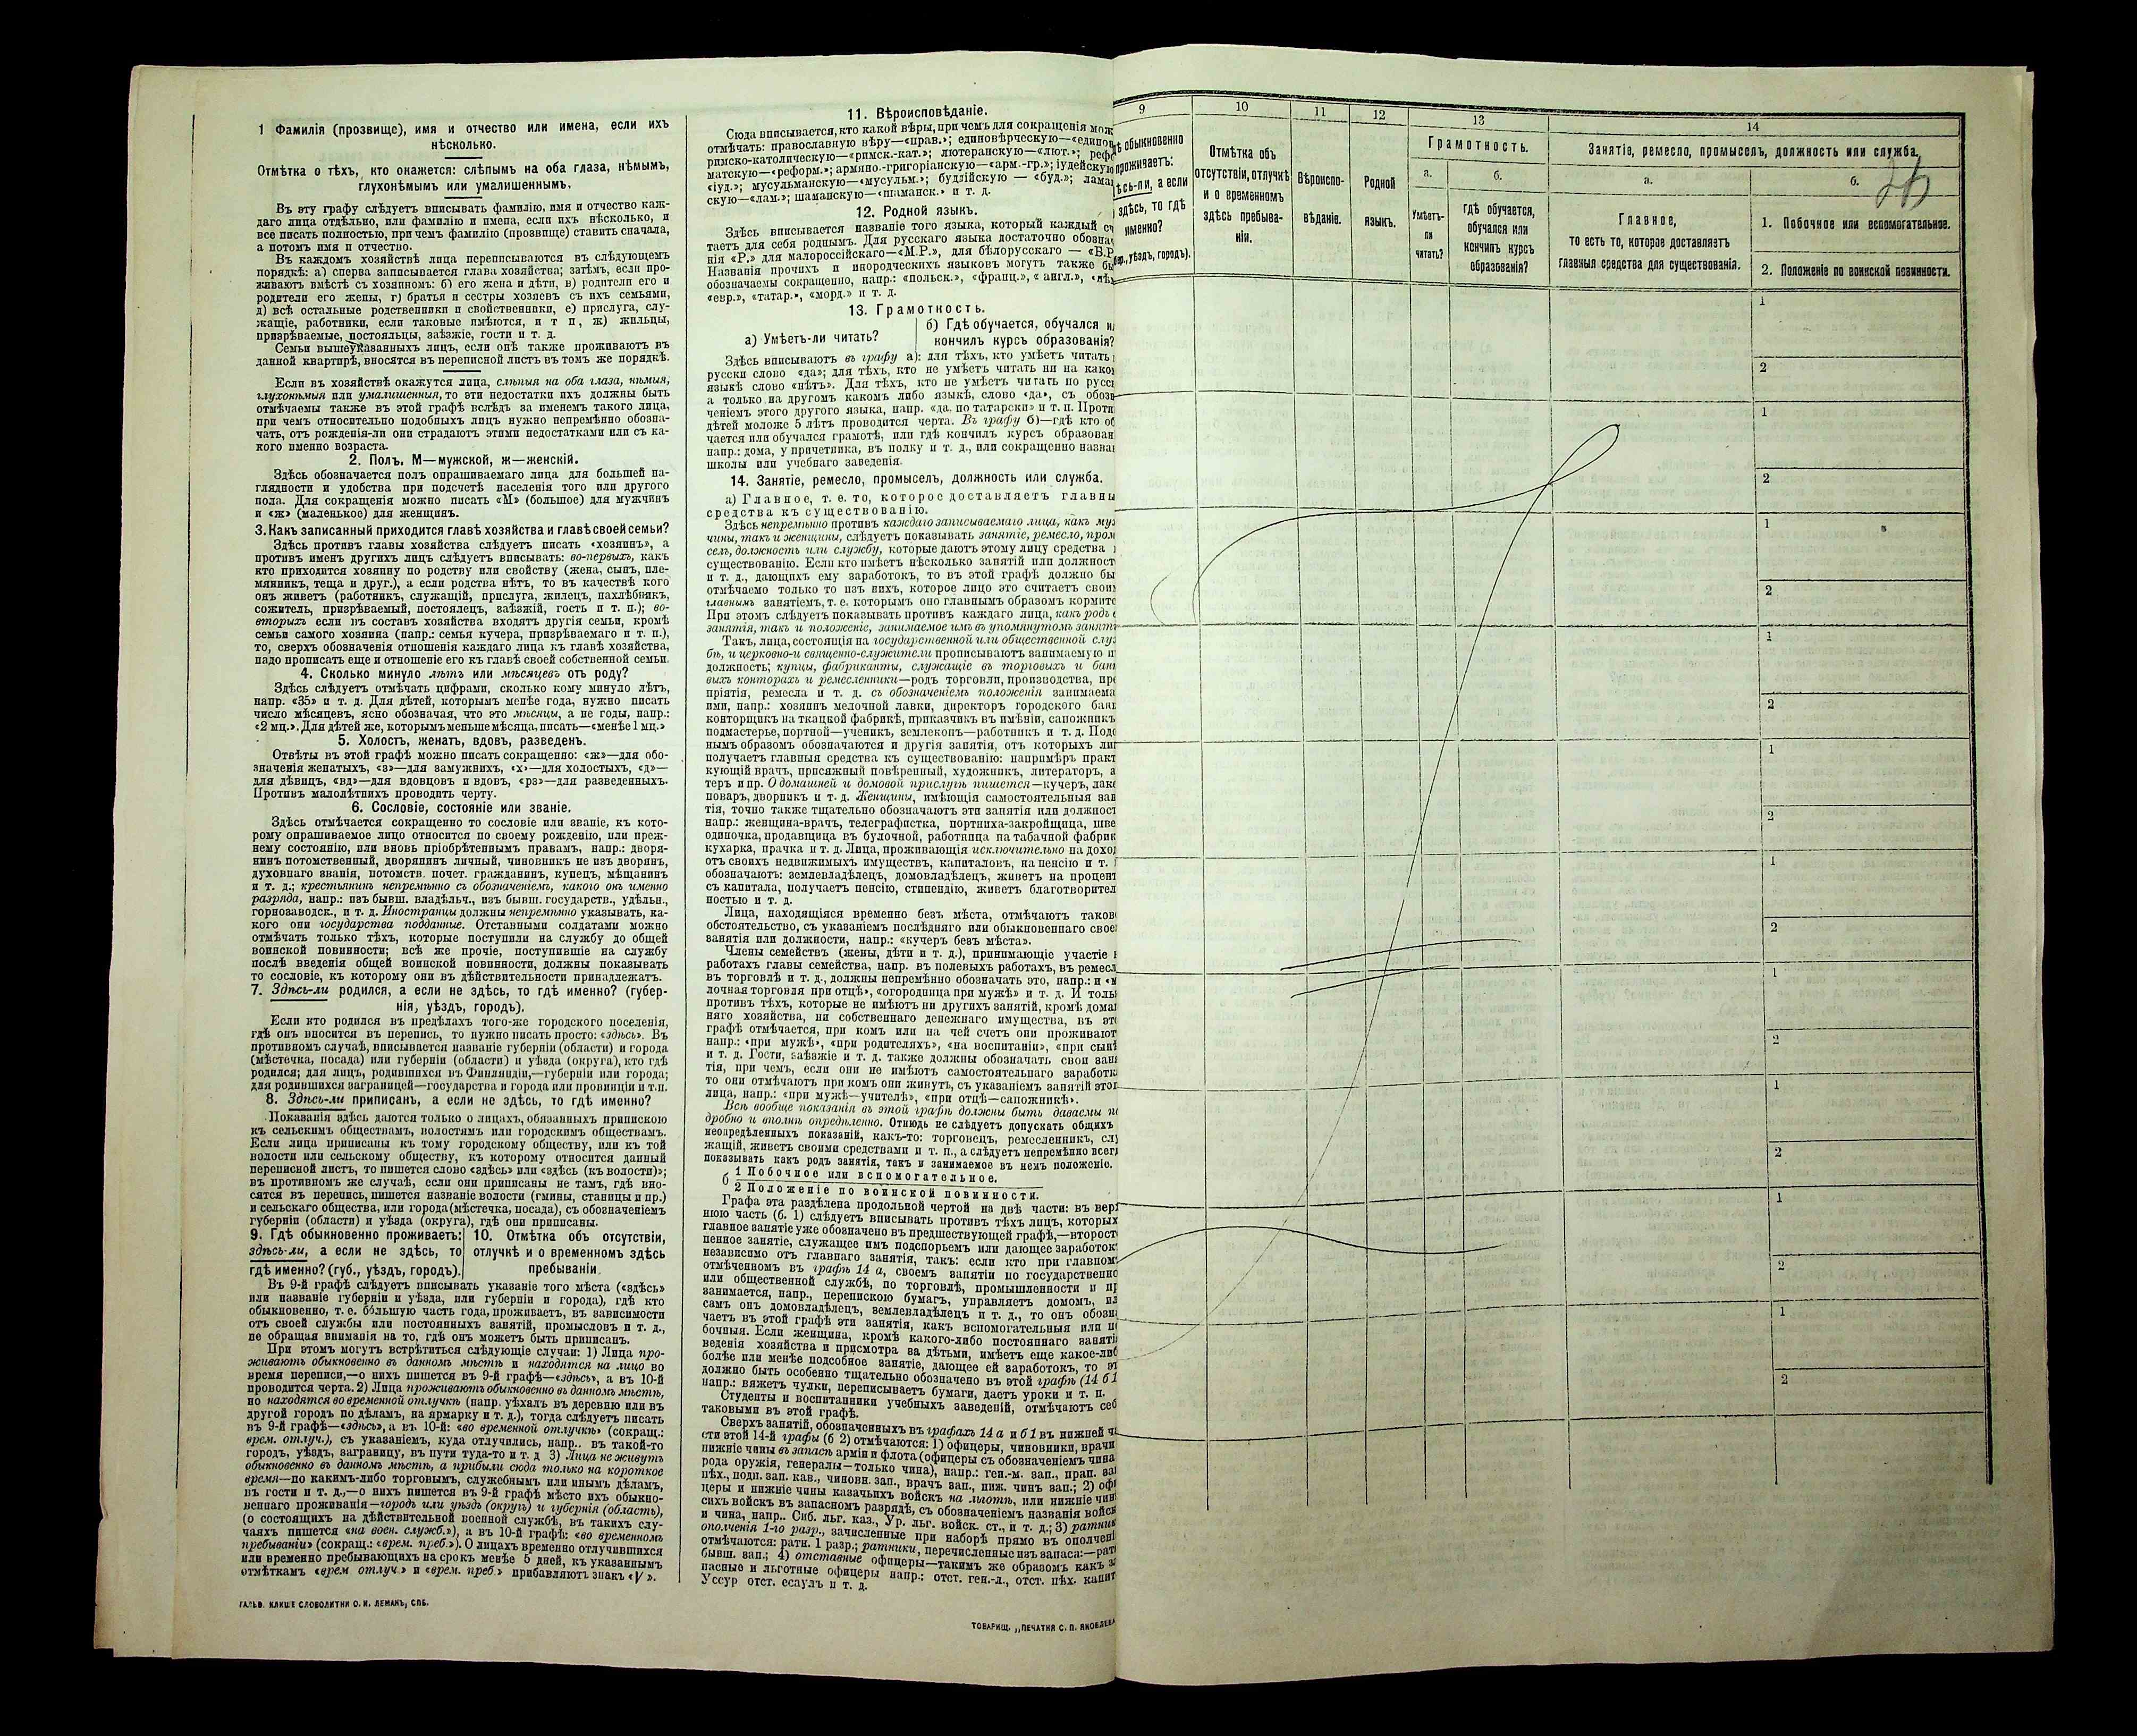 1 Фамилія (прозвище), имя и отчество или имена, если ихъ
нѣсколько.
Отмѣтка о тѣхъ, кто окажется: слѣпымъ на оба глаза, нѣмымъ,
глухонѣмымъ или умалишеннымъ.
Въ эту графу слѣдуетъ вписывать фамилію, имя и отчество каж-
даго лица отдѣльно, или фамилію и имена, если ихъ нѣсколько, и
все писать полностью, при чемъ фамилію (прозвище) ставить сначала,
а потомъ имя и отчество.
Въ каждомъ хозяйствѣ лица переписываются въ слѣдующемъ
порядкѣ: а) сперва записывается глава хозяйства; затѣмъ, если про-
живаютъ вмѣстѣ съ хозяиномъ: б) его жена и дѣти, в) родители его и
родители его жены, г) братья и сестры хозяевъ съ ихъ семьями,
д) всѣ остальные родственники и свойственники, е) прислуга, слу-
жащіе, работники, если таковые имѣются, и т п, ж) жильцы,
призрѣваемые, постояльцы, заѣзжіе, гости и т. д.
Семьи вышеуказанныхъ лицъ, если онѣ также проживаютъ въ
данной квартирѣ, вносятся въ переписной листъ въ томъ же порядкѣ.
Если въ хозяйствѣ окажутся лица, слѣпыя на оба глаза, нѣмыя,
глухонѣмыя или умалишенныя, то эти недостатки ихъ должны быть
отмѣчаемы также въ этой графѣ вслѣдъ за именемъ такого лица,
при чемъ относительно подобныхъ лицъ нужно непремѣнно обозна-
чать, отъ рожденія-ли они страдаютъ этими недостатками или съ ка-
кого именно возраста.
2. Полъ. М—мужской, ж—женскій.
Здѣсь обозначается полъ опрашиваемаго лица для большей на-
глядности и удобства при подсчетѣ населенія того или другого
пола. Для сокращенія можно писать «М» (большое) для мужчинъ
и «ж» (маленькое) для женщинъ.
3. Какъ записанный приходится главѣ хозяйства и главѣ своей семьи?
Здѣсь противъ главы хозяйства слѣдуетъ писать «хозяинъ», а
противъ именъ другихъ лицъ слѣдуетъ вписывать: во-первыхъ, какъ
кто приходится хозяину по родству или свойству (жена, сынъ, пле-
мянникъ, теща и друг.), а если родства нѣтъ, то въ качествѣ кого
онъ живетъ (работникъ, служащій, прислуга, жилецъ, нахлѣбникъ,
сожитель, призрѣваемый, постоялецъ, заѣзжій, гость и т. п.); во-
вторыхъ если въ составъ хозяйства входятъ другія семьи, кромѣ
семьи самого хозяина (напр.: семья кучера, призрѣваемаго и т. п.),
то, сверхъ обозначенія отношенія каждаго лица къ главѣ хозяйства,
надо прописать еще и отношеніе его къ главѣ своей собственной семьи.
4. Сколько минуло лѣтъ или мѣсяцевъ отъ роду?
Здѣсь слѣдуетъ отмѣчать цифрами, сколько кому минуло лѣтъ,
напр. «35» и т. д. Для дѣтей, которымъ менѣе года, нужно писать
число мѣсяцевъ, ясно обозначая, что это мѣсяцы, а не годы, напр.:
«2 мц.». Для дѣтей же, которымъ меньше мѣсяца, писать—«менѣе 1 мц.»
5. Холостъ, женатъ, вдовъ, разведенъ.
Отвѣты въ этой графѣ можно писать сокращенно: «ж»—для обо-
значенія женатыхъ, «з»—для замужнихъ, «х»—для холостыхъ, «д»—
для дѣвицъ, «вд»—для вдовцовъ и вдовъ, «рз»—для разведенныхъ.
Противъ малолѣтнихъ проводить черту.
6. Сословіе, состояніе или званіе.
Здѣсь отмѣчается сокращенно то сословіе или званіе, къ кото-
рому опрашиваемое лицо относится по своему рожденію, или преж-
нему состоянію, или вновь пріобрѣтеннымъ правамъ, напр.: дворя-
нинъ потомственный, дворянинъ личный, чиновникъ не изъ дворянъ,
духовнаго званія, потомств. почет. гражданинъ, купецъ, мѣщанинъ
и т. д.; крестьянинъ непремѣнно съ обозначеніемъ, какого онъ именно
разряда, напр.: изъ бывш. владѣльч., изъ бывш. государств., удѣльн.,
горнозаводск., и т. д. Иностранцы должны непремѣнно указывать, ка-
кого они государства подданные. Отставными солдатами можно
отмѣчать только тѣхъ, которые поступили на службу до общей
воинской повинности; всѣ же прочіе, поступившіе на службу
послѣ введенія общей воинской повинности, должны показывать
то сословіе, къ которому они въ дѣйствительности принадлежатъ.
7. Здѣсь-ли родился, а если не здѣсь, то гдѣ именно? (губер-
нія, уѣздъ, городъ).
Если кто родился въ предѣлахъ того-же городского поселенія,
гдѣ онъ вносится въ перепись, то нужно писать просто: «здѣсь». Въ
противномъ случаѣ, вписывается названіе губерніи (области) и города
(мѣстечка, посада) или губерніи (области) и уѣзда (округа), кто гдѣ
родился; для лицъ, родившихся въ Финляндіи,—губерніи или города;
для родившихся заграницей—государства и города или провинціи и т.п.
8. Здѣсь-ли приписанъ, а если не здѣсь, то гдѣ именно?
Показанія здѣсь даются только о лицахъ, обязанныхъ припискою
къ сельскимъ обществамъ, волостямъ или городскимъ обществамъ.
Если лица приписаны къ тому городскому обществу, или къ той
волости или сельскому обществу, къ которому относится данный
переписной листъ, то пишется слово «здѣсь» или «здѣсь (къ волости)»;
въ противномъ же случаѣ, если они приписаны не тамъ, гдѣ вно-
сятся въ перепись, пишется названіе волости (гмины, станицы и пр.)
и сельскаго общества, или города (мѣстечка, посада), съ обозначеніемъ
губерніи (области) и уѣзда (округа), гдѣ они приписаны.
9. Гдѣ обыкновенно проживаетъ: 10. Отмѣтка объ отсутствіи,
здѣсь-ли, а если не здѣсь, то отлучкѣ и о временномъ здѣсь
гдѣ именно? (губ., уѣздъ, городъ). пребываніи.
Въ 9-й графѣ слѣдуетъ вписывать указаніе того мѣста («здѣсь»
или названіе губерніи и уѣзда, или губерніи и города), гдѣ кто
обыкновенно, т. е. бо́льшую часть года, проживаетъ, въ зависимости
отъ своей службы или постоянныхъ занятій, промысловъ и т. д.,
не обращая вниманія на то, гдѣ онъ можетъ быть приписанъ.
При этомъ могутъ встрѣтиться слѣдующіе случаи: 1) Лица про-
живаютъ обыкновенно въ данномъ мѣстѣ и находятся на лицо во
время переписи,—о нихъ пишется въ 9-й графѣ—«здѣсь», а въ 10-й
проводится черта. 2) Лица проживаютъ обыкновенно въ данномъ мѣстѣ,
но находятся во временной отлучкѣ (напр. уѣхалъ въ деревню или въ
другой городъ по дѣламъ, на ярмарку и т. д.), тогда слѣдуетъ писать
въ 9-й графѣ—«здѣсь», а въ 10-й: «во временной отлучкѣ» (сокращ.:
врем. отлуч.), съ указаніемъ, куда отлучились, напр.. въ такой-то
городъ, уѣздъ, заграницу, въ пути туда-то и т. д 3) Лица не живутъ
обыкновенно въ данномъ мѣстѣ, а прибыли сюда только на короткое
время—по какимъ-либо торговымъ, служебнымъ или инымъ дѣламъ,
въ гости и т. д.,—о нихъ пишется въ 9-й графѣ мѣсто ихъ обыкно-
веннаго проживанія—городъ или уѣздъ (округъ) и губернія (область),
(о состоящихъ на дѣйствительной военной службѣ, въ такихъ слу-
чаяхъ пишется «на воен. служб.»), а въ 10-й графѣ: «во временномъ
пребываніи» (сокращ.: «врем. преб.»). О лицахъ временно отлучившихся
или временно пребывающихъ на срокъ менѣе 5 дней, къ указаннымъ
отмѣткамъ «врем отлуч.» и «врем. преб.» прибавляютъ знакъ «V».
ГАЛЬВ. КЛИШЕ СЛОВОЛИТНИ О. И. ЛЕМАНЪ, СПБ.
11. Вѣроисповѣданіе.
Сюда вписывается, кто какой вѣры, при чемъ для сокращенія мож
отмѣчать: православную вѣру—«прав.»; единовѣрческую—«единов
римско-католическую—«римск.-кат.»; лютеранскую—«лют.»; рефо
матскую—«реформ.»; армяно-григоріанскую—«арм.-гр.»; іудейскую
«іуд.»; мусульманскую—«мусульм.»; буддійскую — «буд.»; лама
скую—«лам.»; шаманскую—«шаманск.» и т. д.
12. Родной языкъ.
Здѣсь вписывается названіе того языка, который каждый сч
таетъ для себя роднымъ. Для русскаго языка достаточно обозна
нія «Р.» для малороссійскаго—«М.Р.», для бѣлорусскаго — «Б.Р
Названія прочихъ и инородческихъ языковъ могутъ также бы
обозначаемы сокращенно, напр.: «польск.», «франц.», «англ.», «нѣм
«евр.», «татар.», «морд.» и т. д.
13. Грамотность.
а) Умѣетъ-ли читать? б) Гдѣ обучается, обучался и
кончилъ курсъ образованія?
Здѣсь вписываютъ въ графу а): для тѣхъ, кто умѣетъ читать
русски слово «да»; для тѣхъ, кто не умѣетъ читать ни на како
языкѣ слово «нѣтъ». Для тѣхъ, кто не умѣетъ читать по русс
а только на другомъ какомъ либо языкѣ, слово «да», съ обозн
ченіемъ этого другого языка, напр. «да, по татарски» и т. п. Проти
дѣтей моложе 5 лѣтъ проводится черта. Въ графу б)—гдѣ кто об
чается или обучался грамотѣ, или гдѣ кончилъ курсъ образован
напр.: дома, у причетника, въ полку и т. д., или сокращенно назва
школы или учебнаго заведенія.
14. Занятіе, ремесло, промыселъ, должность или служба.
а) Главное, т. е. то, которое доставляетъ главны
средства къ существованію.
Здѣсь непремѣнно противъ каждаго записываемаго лица, какъ му
чины, такъ и женщины, слѣдуетъ показывать занятіе, ремесло, пром
селъ, должность или службу, которые даютъ этому лицу средства
существованію. Если кто имѣетъ нѣсколько занятій или должност
и т. д., дающихъ ему заработокъ, то въ этой графѣ должно бы
отмѣчаемо только то изъ нихъ, которое лицо это считаетъ свои
главнымъ занятіемъ, т. е. которымъ оно главнымъ образомъ кормитс
При этомъ слѣдуетъ показывать противъ каждаго лица, какъ родъ е
занятія, такъ и положеніе, занимаемое имъ въ упомянутомъ заняті
Такъ, лица, состоящія на государственной или общественной слу
бѣ, и церковно-и священно-служители прописываютъ занимаемую и
должность; купцы, фабриканты, служащіе въ торговыхъ и бан
выхъ конторахъ и ремесленники—родъ торговли, производства, пре
пріятія, ремесла и т. д. съ обозначеніемъ положенія занимаема
ими, напр.: хозяинъ мелочной лавки, директоръ городского банк
конторщикъ на ткацкой фабрикѣ, приказчикъ въ имѣніи, сапожникъ
подмастерье, портной—ученикъ, землекопъ—работникъ и т. д. Подо
нымъ образомъ обозначаются и другія занятія, отъ которыхъ ли
получаетъ главныя средства къ существованію: напримѣръ практ
кующій врачъ, присяжный повѣренный, художникъ, литераторъ, а
теръ и пр. О домашней и домовой прислугѣ пишется—кучеръ, лак
поваръ, дворникъ и т. д. Женщины, имѣющія самостоятельныя зан
тія, точно также тщательно обозначаютъ эти занятія или должност
напр.: женщина-врачъ, телеграфистка, портниха-закройщица, шве
одиночка, продавщица въ булочной, работница на табачной фабрик
кухарка, прачка и т. д. Лица, проживающія исключительно на дохо
отъ своихъ недвижимыхъ имуществъ, капиталовъ, на пенсію и т.
обозначаютъ: землевладѣлецъ, домовладѣлецъ, живетъ на процент
съ капитала, получаетъ пенсію, стипендію, живетъ благотворител
ностью и т. д.
Лица, находящіяся временно безъ мѣста, отмѣчаютъ таков
обстоятельство, съ указаніемъ послѣдняго или обыкновеннаго свое
занятія или должности, напр.: «кучеръ безъ мѣста».
Члены семействъ (жены, дѣти и т. д.), принимающіе участіе
работахъ главы семейства, напр. въ полевыхъ работахъ, въ ремесл
въ торговлѣ и т. д., должны непремѣнно обозначать это, напр.: и «м
лочная торговля при отцѣ», «огородница при мужѣ» и т. д. И толь
противъ тѣхъ, которые не имѣютъ ни другихъ занятій, кромѣ дома
няго хозяйства, ни собственнаго денежнаго имущества, въ эт
графѣ отмѣчается, при комъ или на чей счетъ они проживают
напр.: «при мужѣ», «при родителяхъ», «на воспитаніи», «при сынѣ
и т. д. Гости, заѣзжіе и т. д. также должны обозначать свои зан
тія, при чемъ, если они не имѣютъ самостоятельнаго заработк
то они отмѣчаютъ при комъ они живутъ, съ указаніемъ занятій этог
лица, напр.: «при мужѣ—учителѣ», «при отцѣ—сапожникѣ».
Всѣ вообще показанія въ этой графѣ должны быть даваемы по
дробно и вполнѣ опредѣленно. Отнюдь не слѣдуетъ допускать общихъ
неопредѣленныхъ показаній, какъ-то: торговецъ, ремесленникъ, слу
жащій, живетъ своими средствами и т. п., а слѣдуетъ непремѣнно всег
показывать какъ родъ занятія, такъ и занимаемое въ немъ положеніе.
б 1 Побочное или вспомогательное.
2 Положеніе по воинской повинности.
Графа эта раздѣлена продольной чертой на двѣ части: въ верх
нюю часть (б. 1) слѣдуетъ вписывать противъ тѣхъ лицъ, которыхъ
главное занятіе уже обозначено въ предшествующей графѣ,—второст
пенное занятіе, служащее имъ подспорьемъ или дающее заработок
независимо отъ главнаго занятія, такъ: если кто при главном
отмѣченномъ въ графѣ 14 а, своемъ занятіи по государственно
или общественной службѣ, по торговлѣ, промышленности и пр
занимается, напр., перепискою бумагъ, управляетъ домомъ, ил
самъ онъ домовладѣлецъ, землевладѣлецъ и т. д., то онъ обозна
чаетъ въ этой графѣ эти занятія, какъ вспомогательныя или по
бочныя. Если женщина, кромѣ какого-либо постояннаго заняті
веденія хозяйства и присмотра за дѣтьми, имѣетъ еще какое-либ
болѣе или менѣе подсобное занятіе, дающее ей заработокъ, то эт
должно быть особенно тщательно обозначено въ этой графѣ (14 б 1
напр.: вяжетъ чулки, переписываетъ бумаги, даетъ уроки и т. п.
Студенты и воспитанники учебныхъ заведеній, отмѣчаютъ себ
таковыми въ этой графѣ.
Сверхъ занятій, обозначенныхъ въ графахъ 14 а и б 1 въ нижней ча
сти этой 14-й графы (б 2) отмѣчаются: 1) офицеры, чиновники, врачи
нижніе чины въ запасѣ арміи и флота (офицеры съ обозначеніемъ чина
рода оружія, генералы—только чина), напр.: ген.-м. зап., прап. за
пѣх., подп. зап. кав., чиновн. зап., врачъ зап., ниж. чинъ зап.; 2) офи
церы и нижніе чины казачьихъ войскъ на льготѣ, или нижніе чин
сихъ войскъ въ запасномъ разрядѣ, съ обозначеніемъ названія войск
и чина, напр.. Сиб. льг. каз., Ур. льг. войск. ст., и т. д.; 3) ратник
ополченія 1-го разр., зачисленные при наборѣ прямо въ ополчені
отмѣчаются: ратн. 1 разр.; ратники, перечисленные изъ запаса:—рат
бывш. зап.; 4) отставные офицеры—такимъ же образомъ какъ за
пасные и льготные офицеры напр.: отст. ген.-л., отст. пѣх. капит
Уссур отст. есаулъ и т. д.
ТОВАРИЩ. „ПЕЧАТНЯ С. П. ЯКОВЛЕВА
9 10 11 12 13 14
дѣ обыкновенно
проживаетъ:
ѣсь-ли, а если
здѣсь, то гдѣ
именно?
бер., уѣздъ, городъ).
Отмѣтка объ
отсутствіи, отлучкѣ
и о временномъ
здѣсь пребыва-
ніи.
Вѣроиспо-
вѣданіе.
Родной
языкъ.
Грамотность.
а.
Умѣетъ-
ли
читать?
б.
гдѣ обучается,
обучался или
кончилъ курсъ
образованія?
Занятіе, ремесло, промыселъ, должность или служба.
а.
Главное,
то есть то, которое доставляетъ
главныя средства для существованія.
б.
26
1. Побочное или вспомогательное.
2. Положеніе по воинской повинности.
1
2
1
2
1
2
1
2
1
2
1
2
1
2
1
2
1
2
1
2